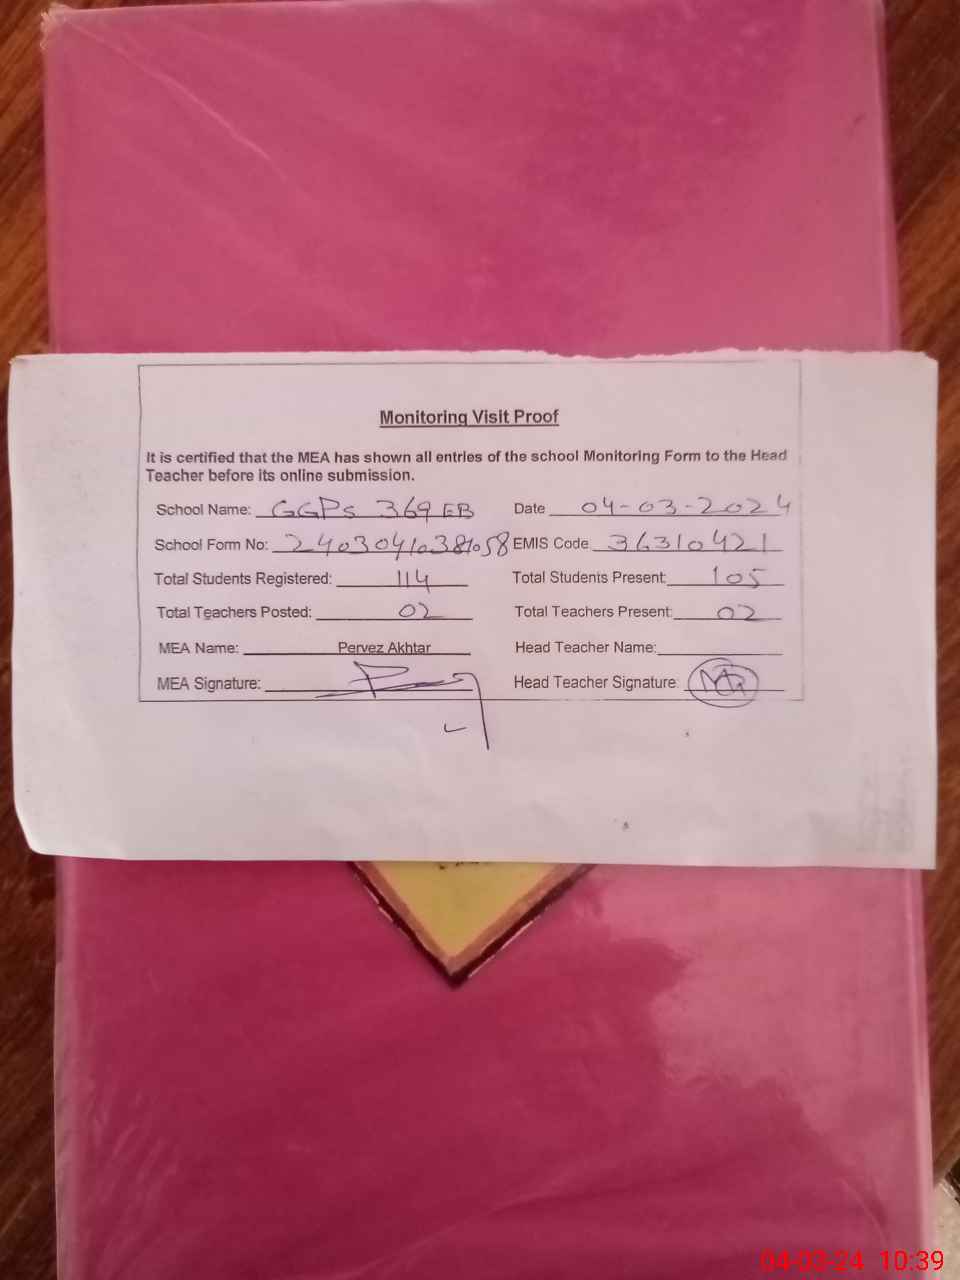 Monitoring Visit Proof
It is certified that the MEA has shown all entries of the school Monitoring Form to the Head
Teacher before its online submission.
School Name: GGPS 369 EB Date 04-03-2024
School Form No: 24030410381058 EMIS Code 36310421
Total Students Registered: 114 Total Students Present: 105
Total Teachers Posted: 02 Total Teachers Present: 02
MEA Name: Pervez Akhtar Head Teacher Name:
MEA Signature: Head Teacher Signature:
04-03-24 10:39